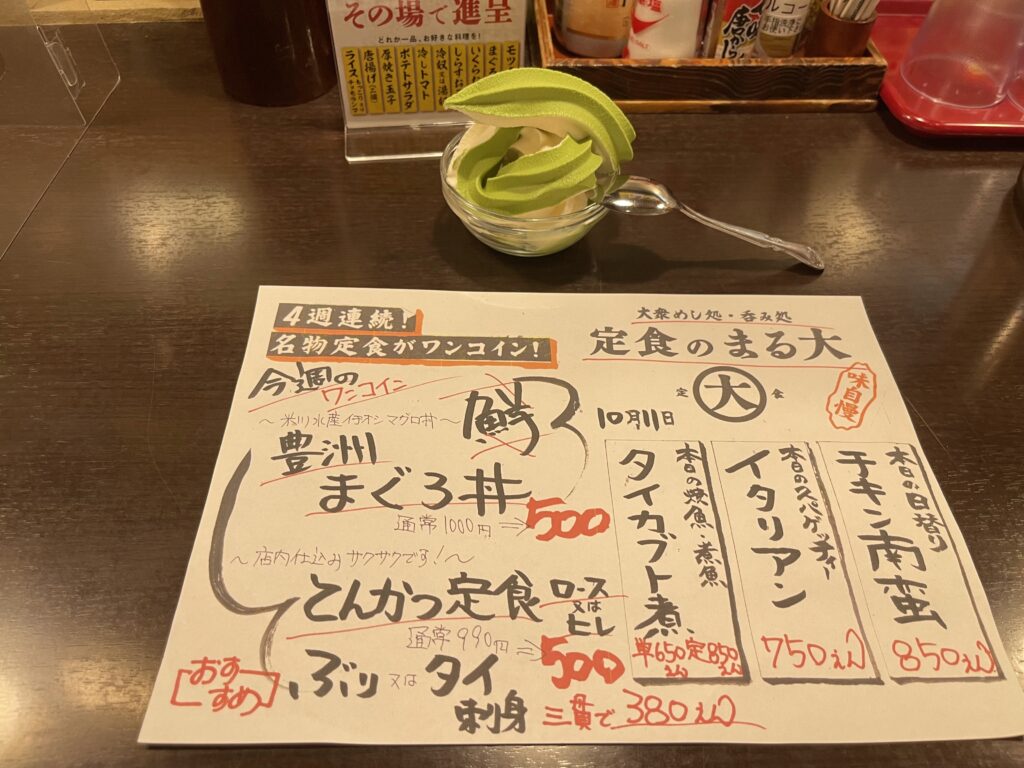 その場で進呈
どれか一品、お好きな料理を!
冷しトマト
ポテトサラダ
厚焼き玉子
唐揚げ
ライス
4週連続!
名物定食がワンコイン!
今週の
ワンコイン
豊洲
まぐろ丼
通常1000円⇒500
~店内仕込みサクサクです!~
とんかつ定食 ロース又はヒレ
通常990円⇒500
おすすめ
ぶり又はタイ
刺身 三貫で380えん
大衆めし処・呑み処
定食のまる大
定 大 食
味自慢
10月11日
本日の日替り
チキン南蛮
850えん
本日のスパゲッティー
イタリアン
750えん
本日の焼魚・煮魚
タイカブト煮
単650えん 定850えん